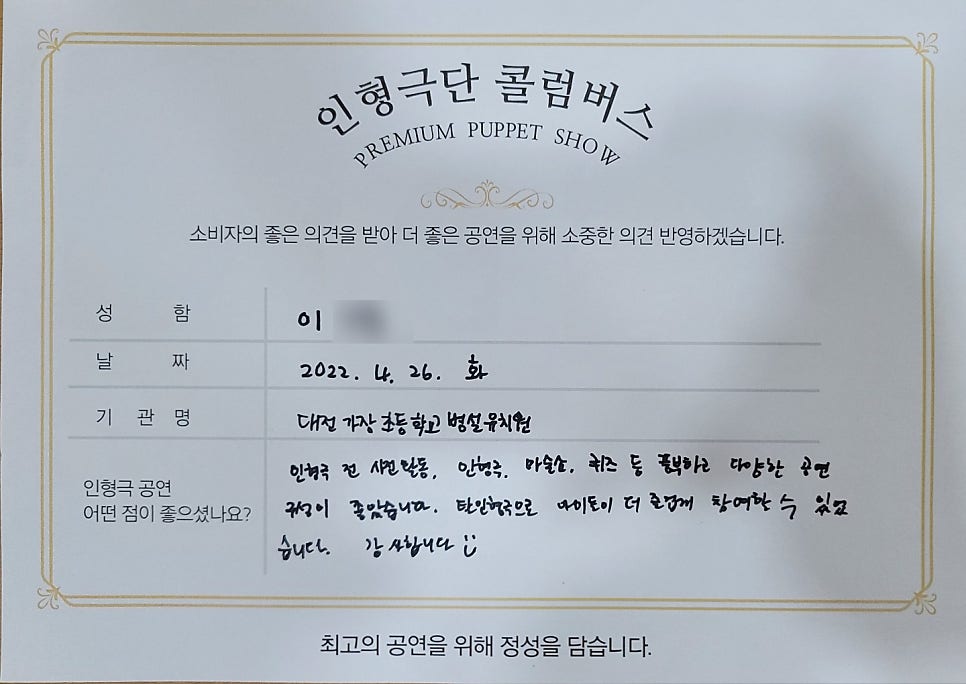 인형극단 콜럼버스
PREMIUM PUPPET SHOW
소비자의 좋은 의견을 받아 더 좋은 공연을 위해 소중한 의견 반영하겠습니다.
성 함 이
날 짜 2022. 4. 26. 화
기 관 명 대전 가장 초등학교 병설유치원
인형극 공연
어떤 점이 좋으셨나요?
인형극 전 사전활동, 인형극, 마술쇼, 퀴즈 등 풍부하고 다양한 공연
구성이 좋았습니다. 탄인형극으로 아이들이 더 즐겁게 참여할 수 있었
습니다. 감사합니다
최고의 공연을 위해 정성을 담습니다.